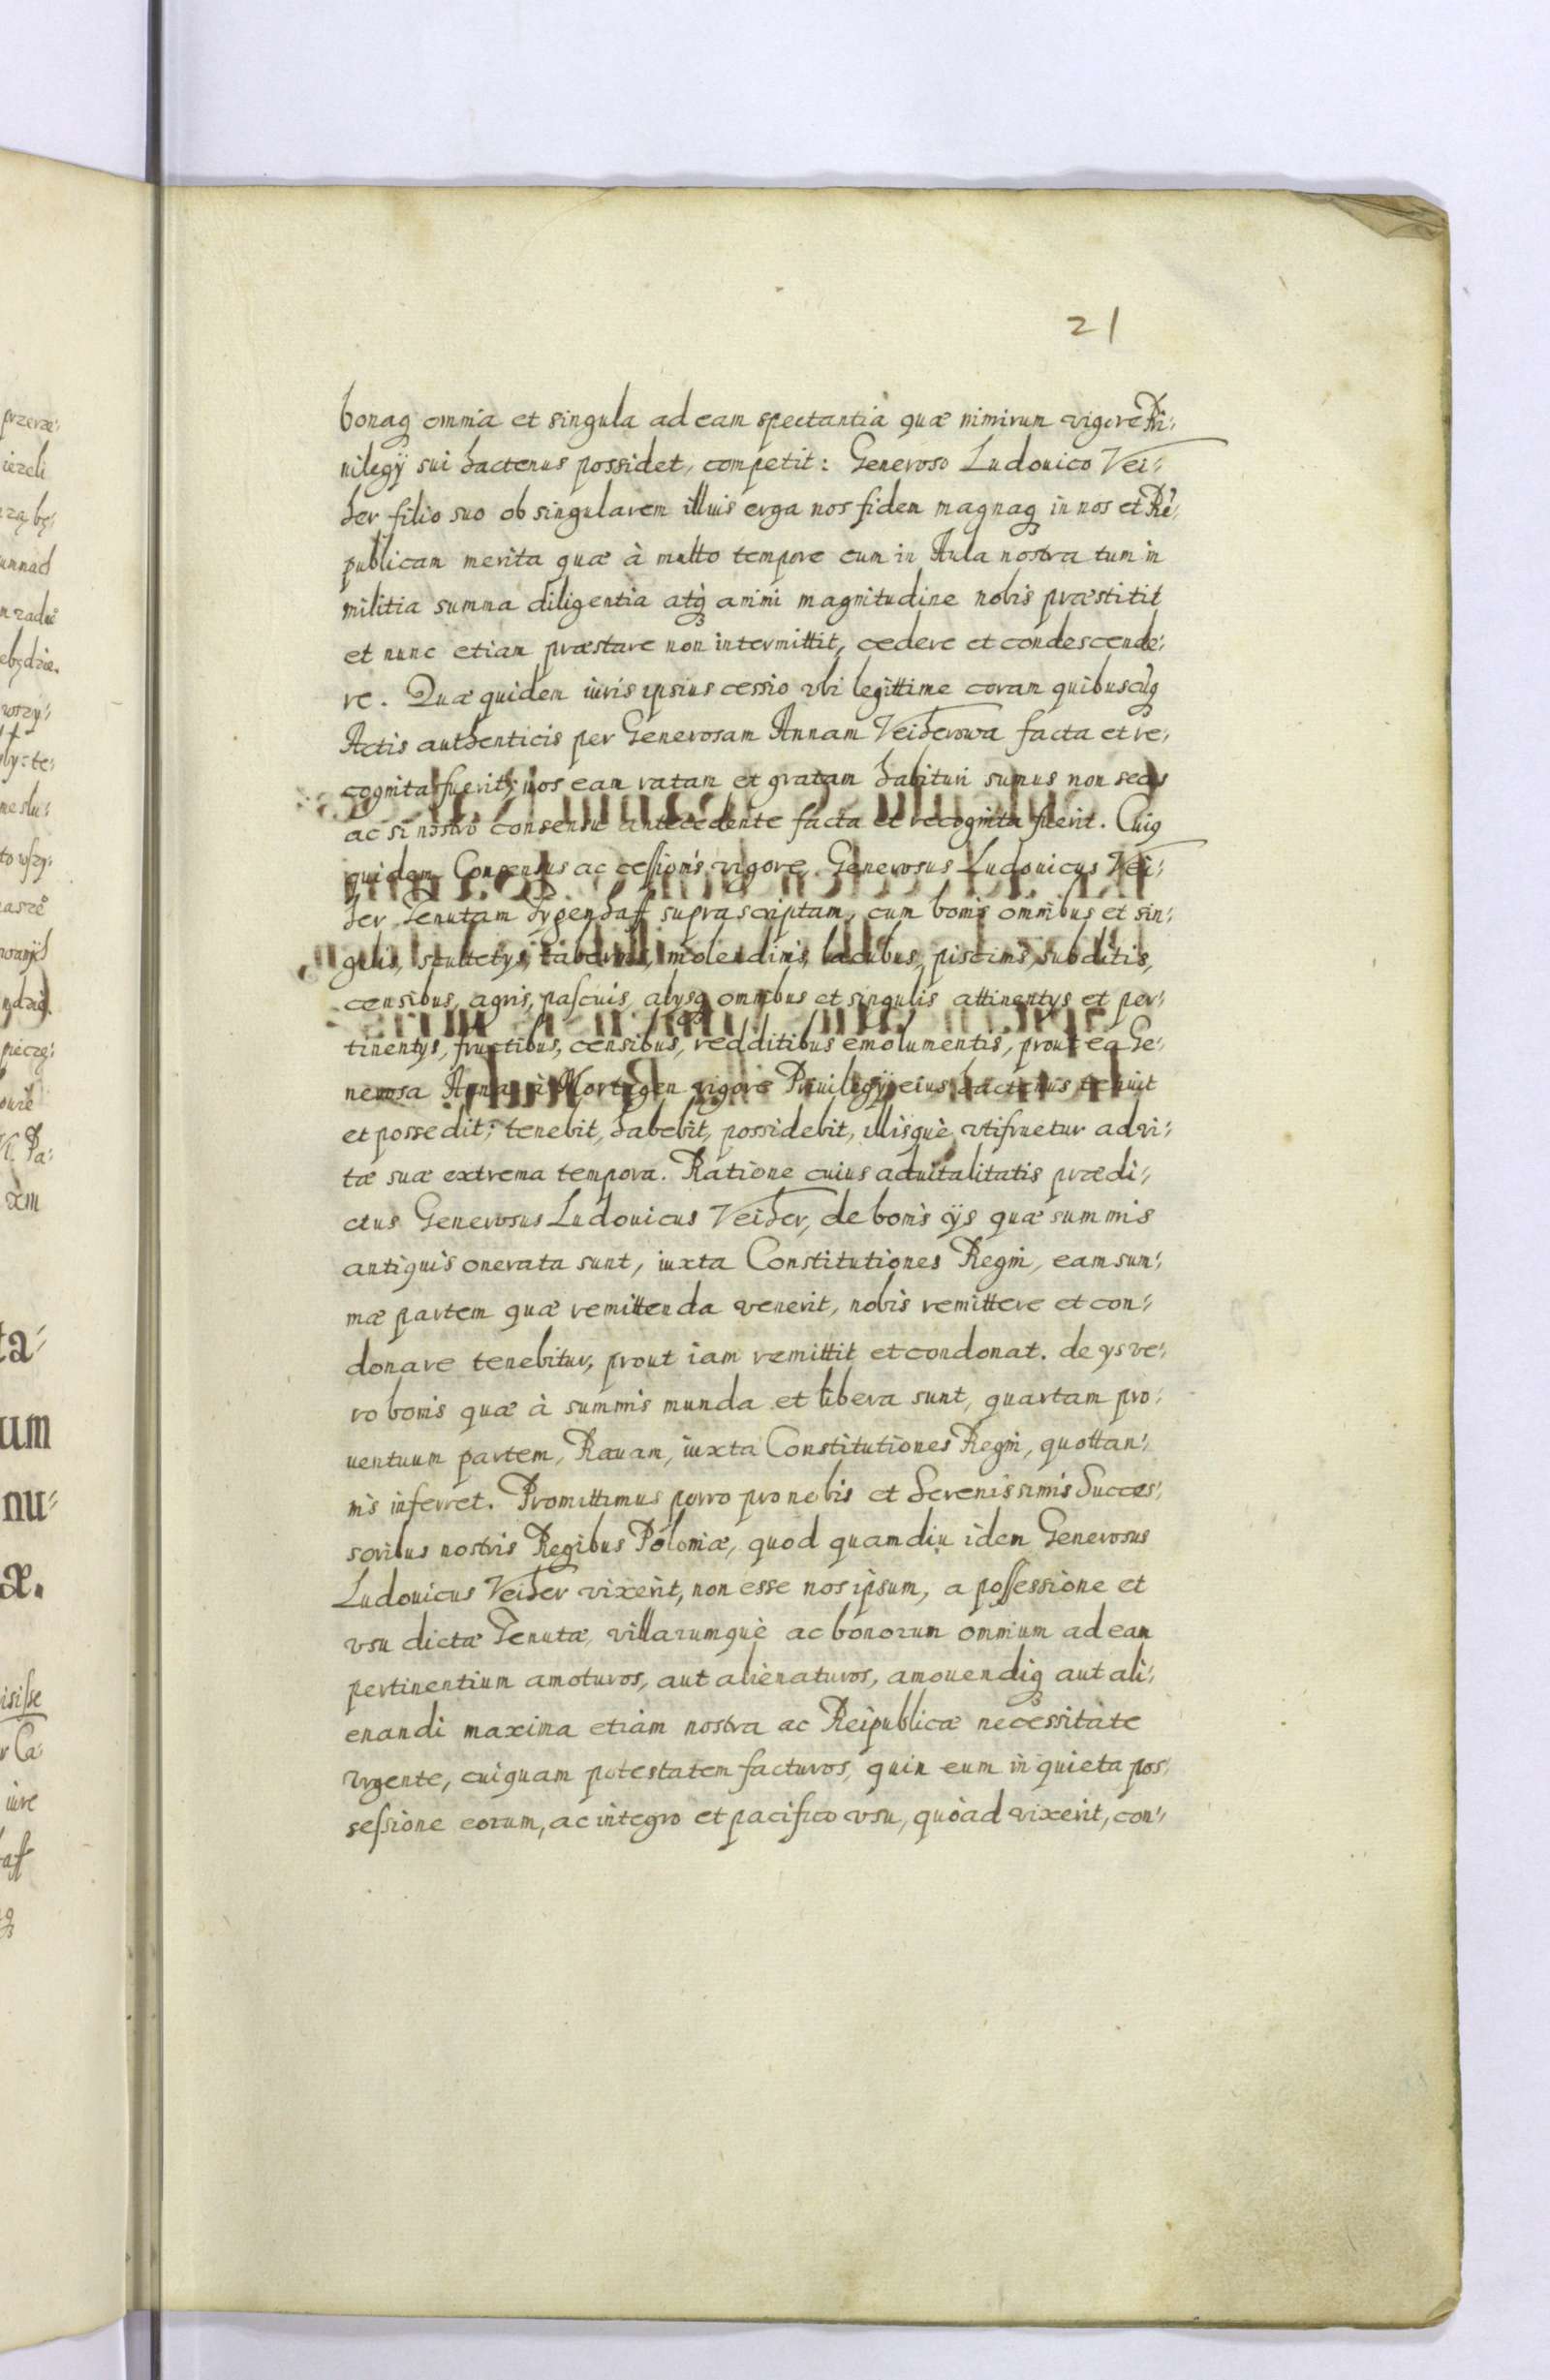 21
bonaq omnia et singula ad eam spectantia quæ nimirum vigore Pri,
uilegÿ sui hactenus possidet, competit: Generoso Ludouico Vei,
her filio suo ob singularem illius erga nos fidem magnaq in nos et Rē,
publicam merita quæ à multo tempore cum in Aula nostra tum in
militia summa diligentia atq animi magnitudine nobis præstitit
et nunc etiam præstare non intermittit, cedere et condescende,
re. Quæ quidem iuris ipsius cessio vbi legittime coram quibuscūq
Actis authenticis per Generosam Annam Veiherowa facta et re,
cognita fuerit, nos eam ratam et gratam habituri sumus non secus
ac si nostro consensu antecedente facta et recognita fuerit. Cuiq
quidem Consensus ac cessionis vigore, Generosus Ludouicus Vei,
her Tenutam suprascriptam, cum bonis omnibus et sin,
gulis, scultetys, tabernis, molendinis, lacubus, piscinis, subditis,
censibus, agris, pascuis, alysq omnibus et singulis attinentys et per,
tinentys, fructibus, censibus, redditibus emolumentis, prout ea Ge,
nerosa Anna à Mortegen vigore Priuilegÿ eius hactenus tenuit
et possedit; tenebit, habebit, possidebit, illisquè vtifruetur ad vi,
tæ suæ extrema tempora. Ratione cuius aduitalitatis prædi,
ctus Generosus Ludouicus Veiher, de bonis ijs quæ summis
antiquis onerata sunt, iuxta Constitutiones Regni, eam sum,
mæ partem quæ remittenda venerit, nobis remittere et con,
donare tenebitur, prout iam remittit et condonat. de ys ve,
ro bonis quæ à summis munda et libera sunt, quartam pro,
uentuum partem, Rauam, iuxta Constitutiones Regni, quottan,
nis inferret. Promittimus porro pro nobis et Serenissimis Succes,
soribus nostris Regibus Poloniæ, quod quamdiu idem Generosus
Ludouicus Veiher vixerit, non esse nos ipsum, a possessione et
vsu dictæ Tenutæ, villarumquè ac bonorum omnium ad eam
pertinentium amoturos, aut alienaturos, amouendiq aut ali,
enandi maxima etiam nostra ac Reipublicæ necessitate
vrgente, cuiquam potestatem facturos, quin eum in quieta pos,
sessione eorum, ac integro et pacifico vsu, quòad vixerit, con,